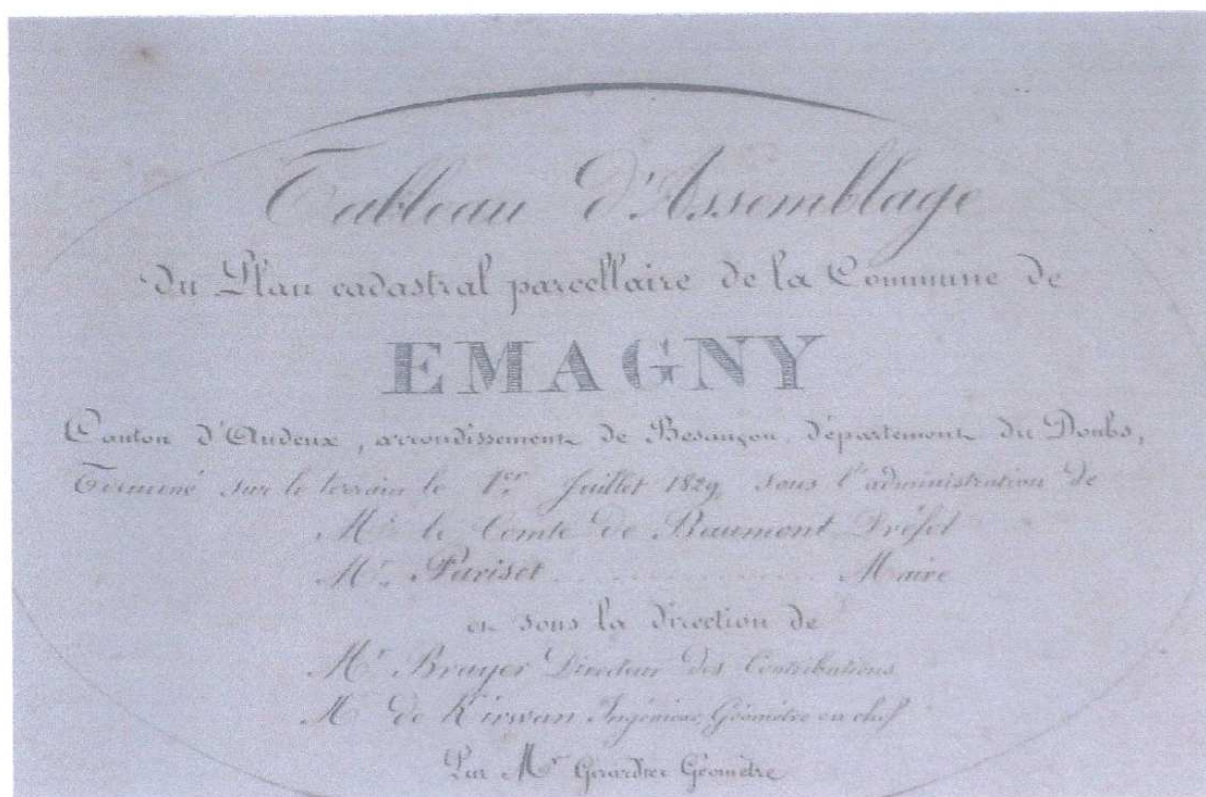 Tableau d'Assemblage
du Plan cadastral parcellaire de la Commune de
EMAGNY
Canton d'Audeux, arrondissement de Besançon, département du Doubs,
Terminé sur le terrain le 1er Juillet 1829, sous l'administration de
Mr. le Comte de Beaumont Préfet
Mr. Pariset ............ Maire
et sous la direction de
Mr Brayer Directeur des Contributions
Mr de Kirwan Ingénieur, Géomètre en chef
Par Mr Girardier Géomètre